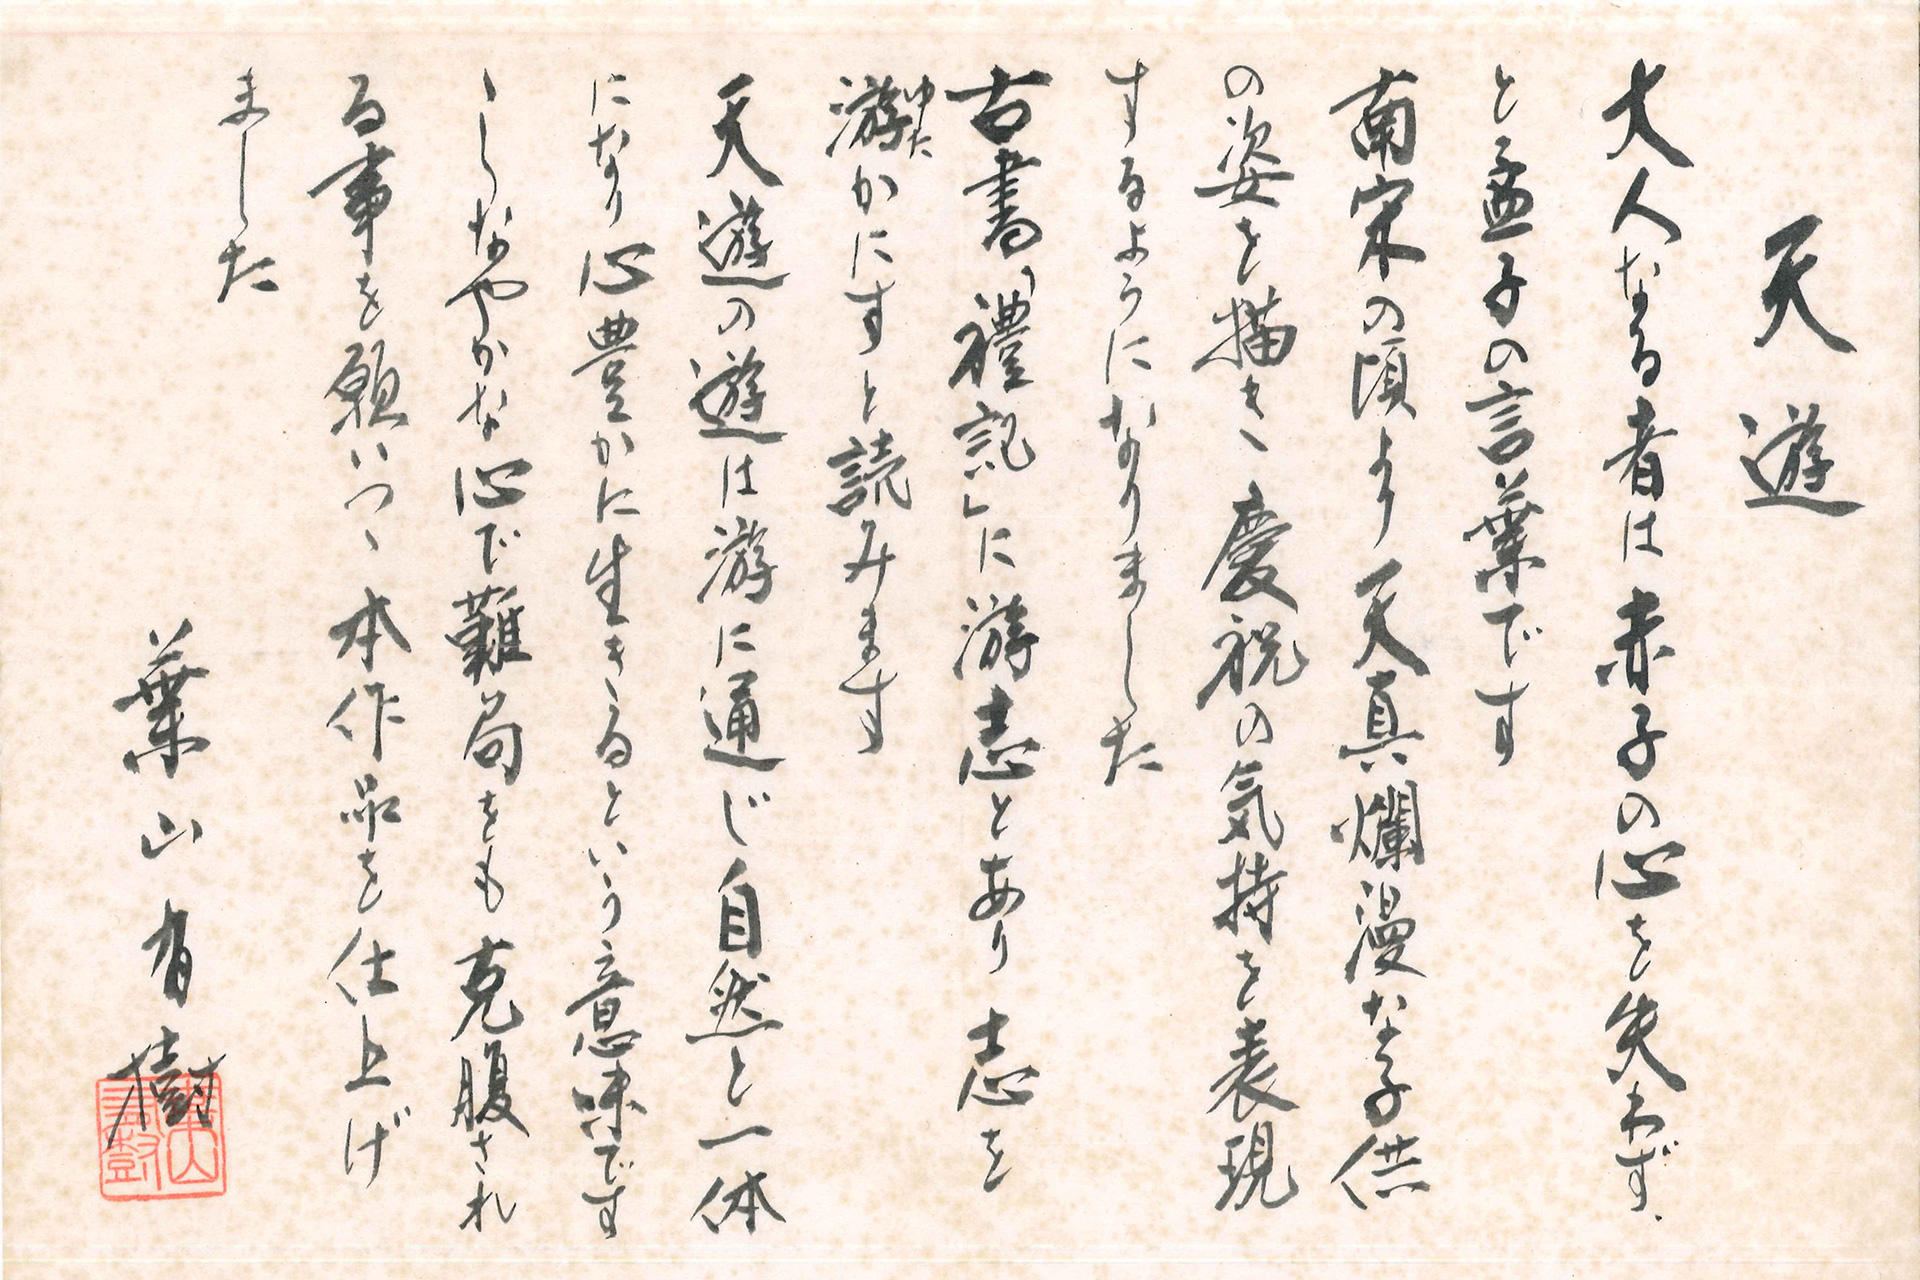 天遊
大人なる者は赤子の心を失わず、
と孟子の言葉です
南宋の頃より天真爛漫な子供
の姿を描き、慶祝の気持を表現
するようになりました
古書「禮記」に游志とあり志を
游かにすと読みます
ゆた
天遊の遊は游に通じ自然と一体
になり心豊かに生きるという意味です
しなやかな心で難局をも克腹され
る事を願いつゝ本作品を仕上げ
ました
葉山有樹